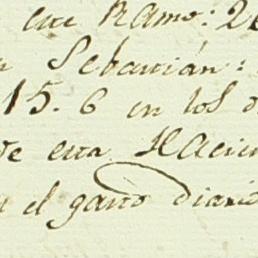 este Ramo: 2
Sebastián:
15. 6 en los d
de esta Hacien
el gasto diario